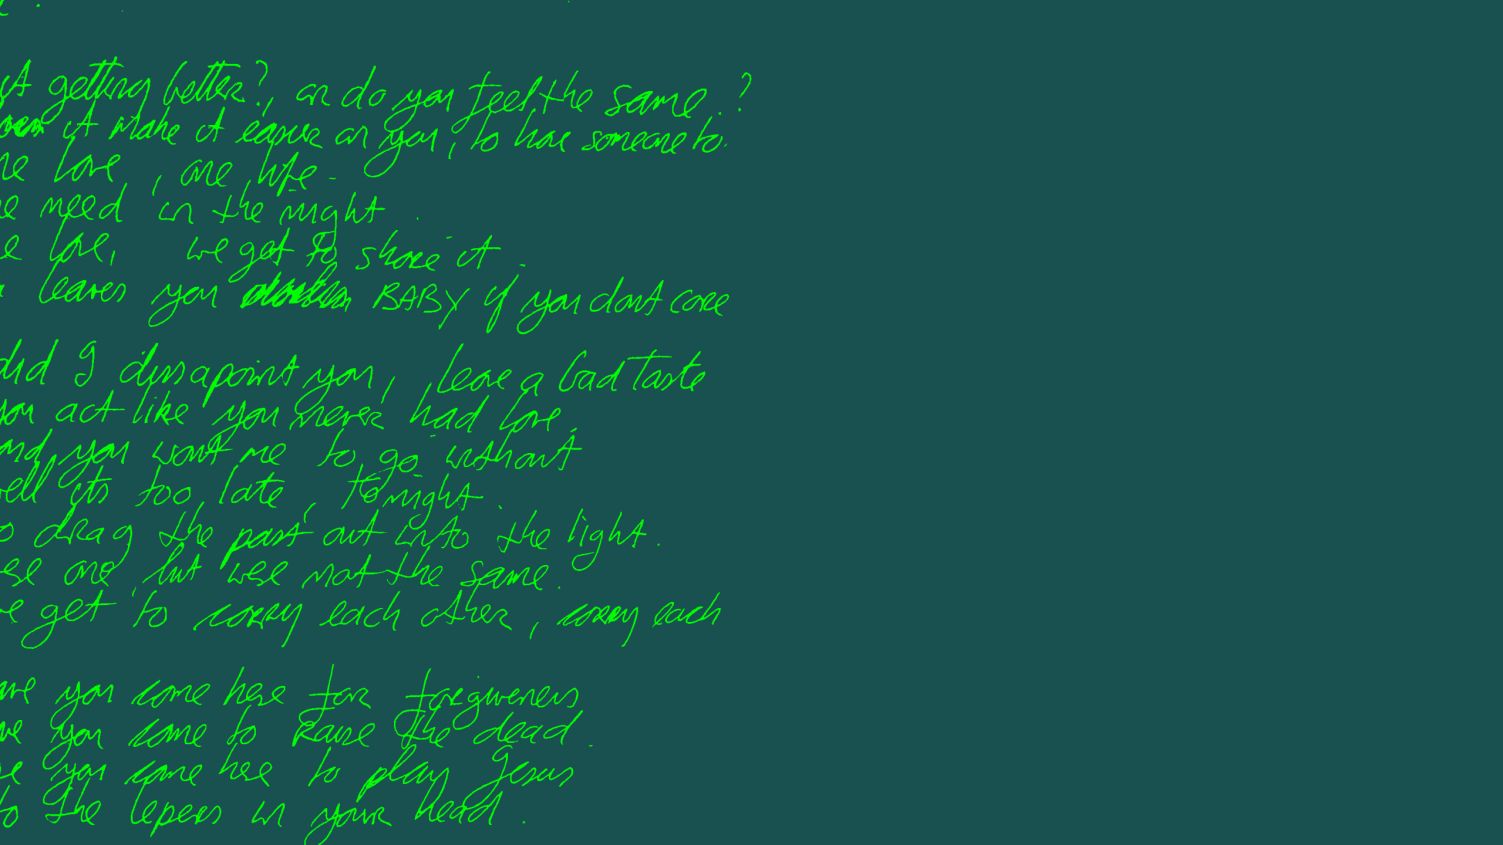 it getting better?, or do you feel the same.?
it make it easier on you, to have someone to.
love, one life.
need in the night.
love, we get to share it.
leaves you BABY if you dont care
did I dissapoint you, leave a bad taste
you act like you never had love.
and you want me to go without
well its too late, tonight.
to drag the past out into the light.
one, but were not the same.
get to carry each other, carry each
you come here for forgiveness
you come to raise the dead.
you come here to play Jesus
to the lepers in your head.